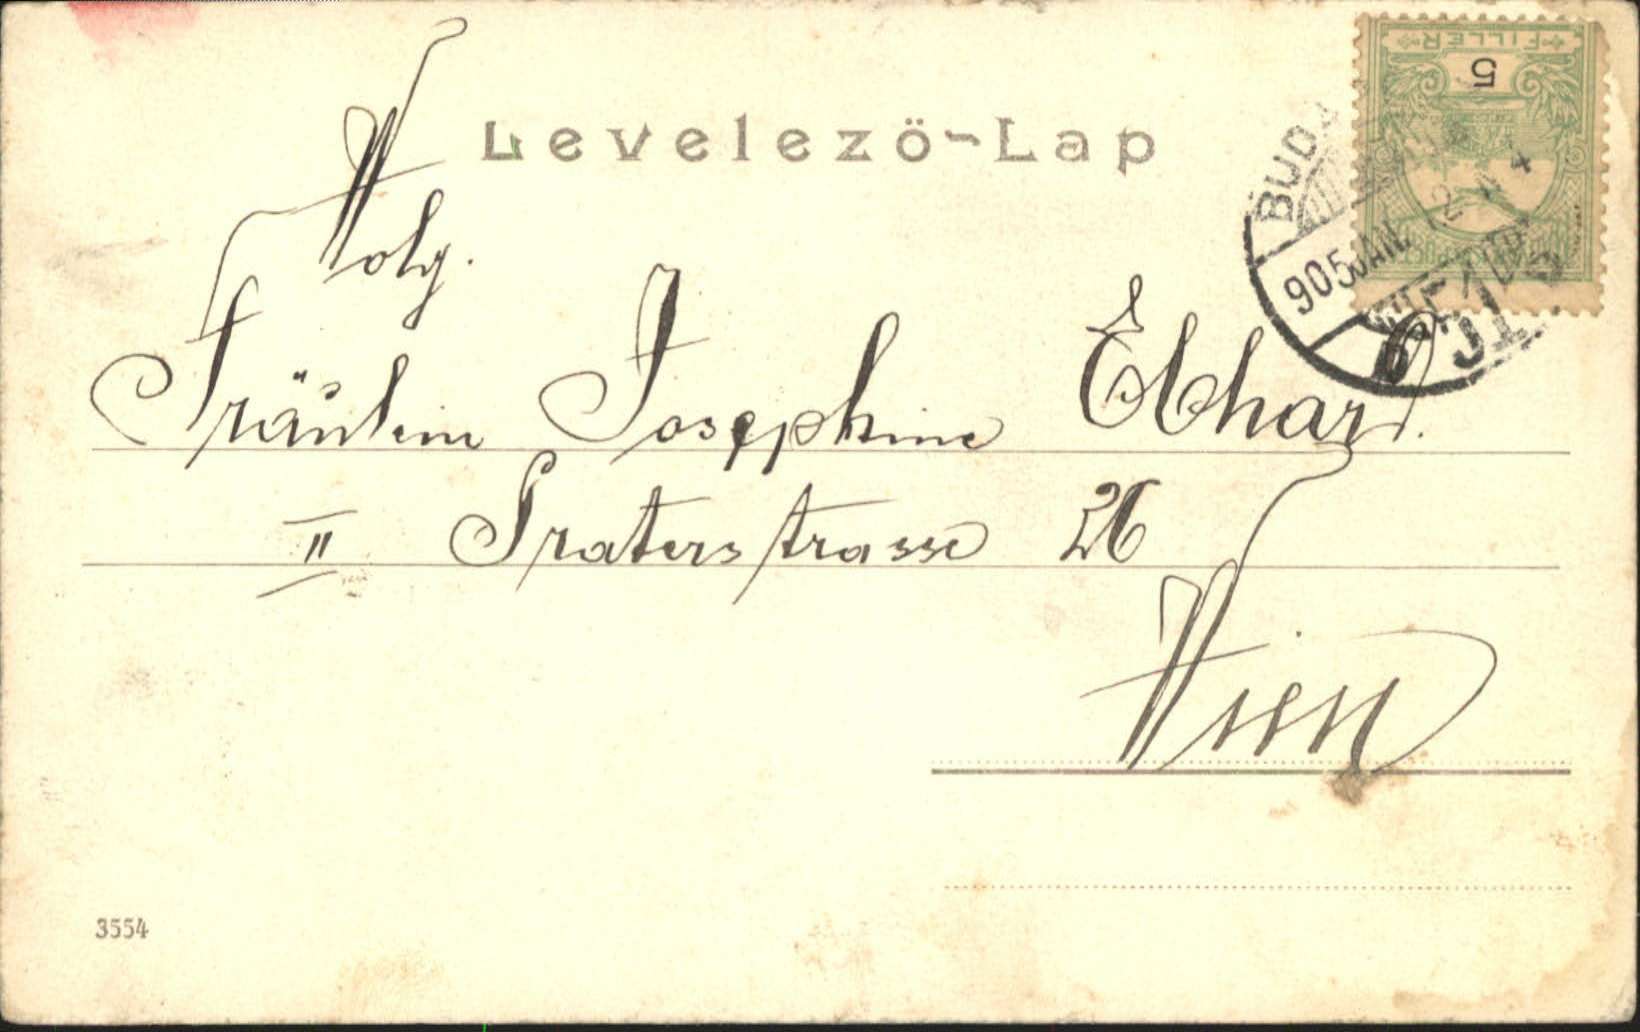 Levelező-Lap
FILLÉR
5
BUDA
905 JAN. 2
Wolg.
Fräulein Josephine
II Praterstrasse 26
Wien
3554